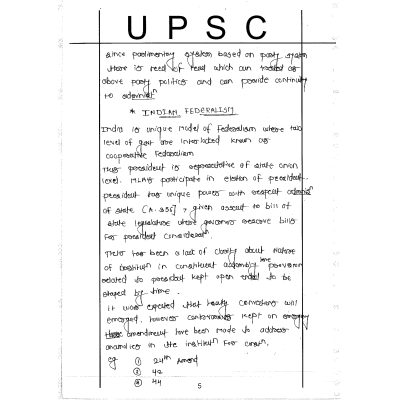 UPSC
since parlimentary system based on party system
there is need of head which can looked as
above party politics and can provide continuity
to administn
* INDIAN FEDERALISM
India is unique model of Federalism where two
level of govt are interlocked known as
cooperative Federalism
Thus president is representative of state union
level. MLAs participate in election of president.
president has unique power with respect adminisn
of state [A. 356], given assent to bill of
state legislature where governor reserve bills
for president consideratn.
There has been a lack of clarity about Nature
of Institutn in constituent assembly the provision
related to president kept open ended to be
shaped by time.
it was expected that healty conventions will
emerged. however controversies kept on emerging
these amendment have been made to address
anamolies in the institutn For consn.
eg ① 24th Amend
② 42
③ 44
5